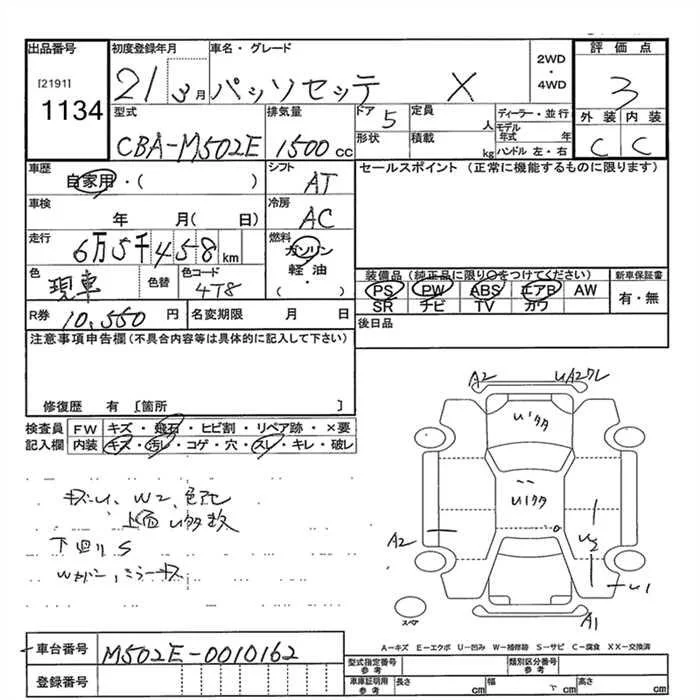 出品番号
[2191]
1134
初度登録年月
21 3月
車名・グレード
パッソセッテ X
2WD
・
4WD
評価点
3
外装 内装
C C
型式
CBA-M502E
排気量
1500 cc
ドア 5
定員 人
形状
積載 kg
ディーラー・並行
モデル年式 年
ハンドル 左・右
車歴
自家用・( )
シフト
AT
セールスポイント (正常に機能するものに限ります)
車検
年 月( 日)
冷房
AC
走行
6万5千458km
燃料
ガソリン
軽油
( )
色
現車
色替
色コード
4T8
装備品 (純正品に限り○をつけてください)
新車保証書
PS PW ABS エアB AW
SR ナビ TV カワ
有・無
R券 10,550 円
名変期限 月 日
後日品
注意事項申告欄(不具合内容等は具体的に記入して下さい)
修復歴 有 [箇所 ]
検査員
記入欄
FW キズ・飛石・ヒビ割・リペア跡・×要
内装 キズ・汚レ・コゲ・穴・スレ・キレ・破レ
A2
UA2ワレ
U1タタ
U1タタ
A2
U2
U1
A1
スペア
下回りS
A-キズ E-エクボ U-凹み W-補修跡 S-サビ C-腐食 XX-交換済
車台番号 M502E-0010162
登録番号
型式指定番号
参考
類別区分番号
参考
車庫証明用
参考
長さ cm
幅 cm
高さ cm